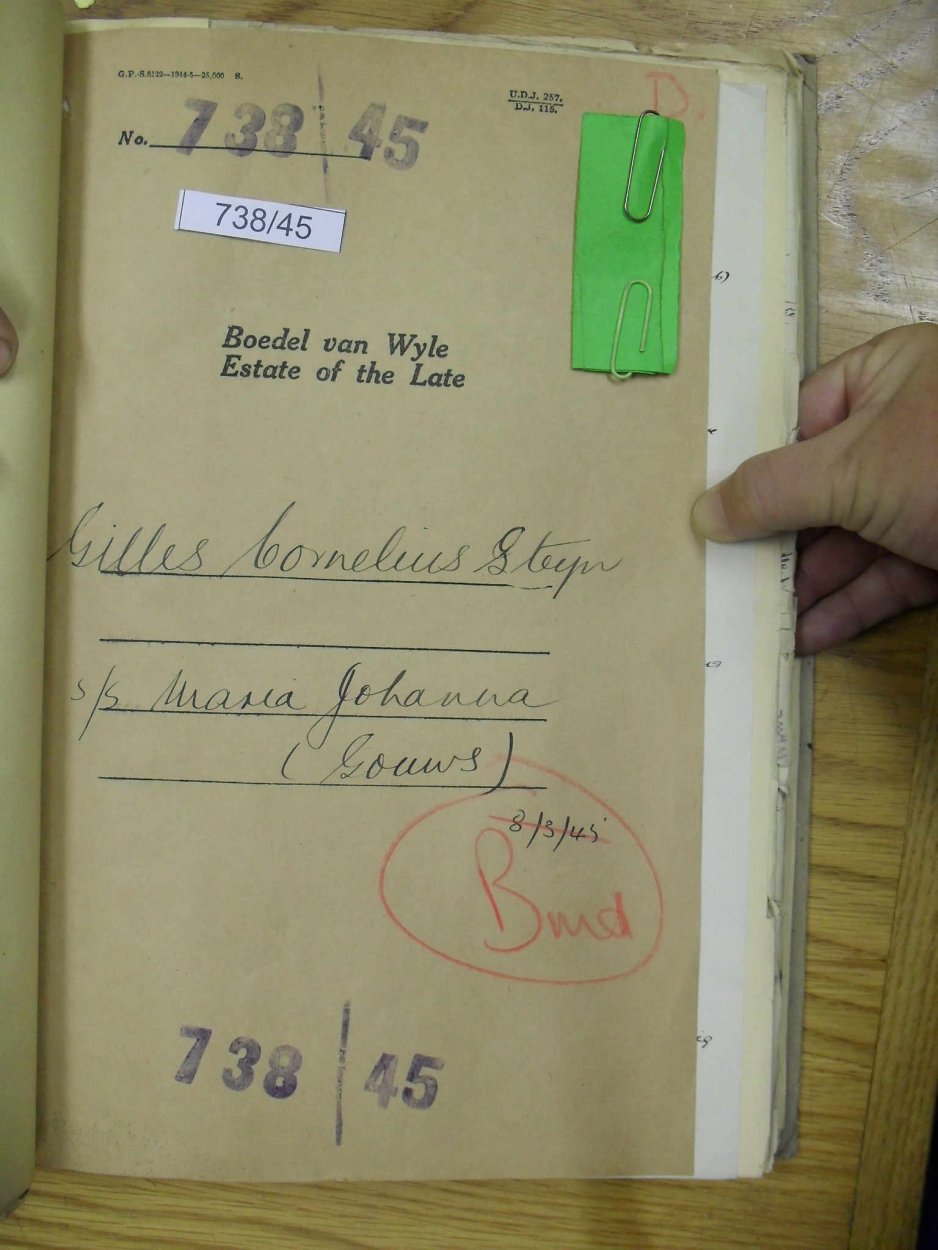 G.P.-S.8122—1944-5—25,000 S.
U.D.J. 257.
D.J. 115.
D.
No. 738 | 45
738/45
Boedel van Wyle
Estate of the Late
Gilles Cornelius Steyn
s/s Maria Johanna
(Gouws)
8/3/45
738 | 45